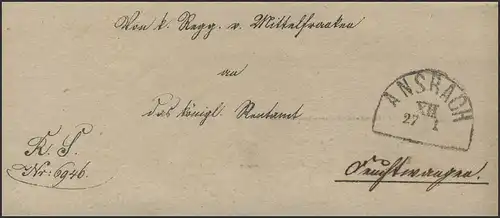 Von k. Regg. v. Mittelfranken
an
das königl. Rentamt
ANSBACH
XII
27 1
R. S.
Nr: 6946.
Feuchtwangen.